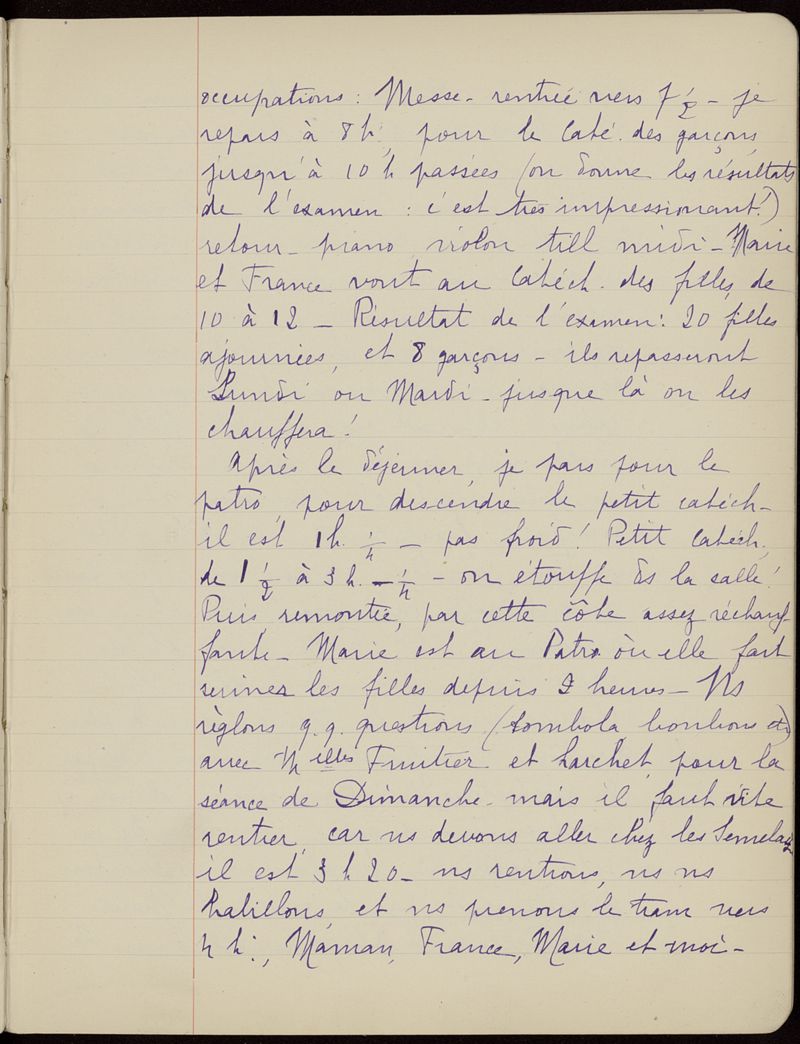 occupations : Messe - rentrée vers 7 ½ - je
repars à 8 h, pour le caté. des garçons,
jusqu'à 10 h passées (on donne les résultats
de l'examen : c'est très impressionant !)
retour - piano, violon till midi - Marie
et France vont au catéch. des filles, de
10 à 12 - Résultat de l'examen : 20 filles
ajournées, et 8 garçons - ils repasseront
Lundi ou Mardi - jusque là on les
chauffera !
Après le déjeuner, je pars pour le
patro, pour descendre le petit catéch -
il est 1 h. ¼ - pas froid ! Petit catéch.
de 1 ½ à 3 h. - ¼ - on étouffe ds la salle !
Puis, remontée, par cette côte assez réchauf
fante - Marie est au Patro où elle fait
reviner les filles depuis 2 heures - Ns
règlons q.q. questions (tombola, bonbons etc)
avec Melles Fruitier et Larchet, pour la
séance de Dimanche - mais il faut vite
rentrer, car ns devons aller chez les
il est 3 h 20 - ns rentrons, ns ns
habillons, et ns prenons le tram vers
4 h., Maman, France, Marie et moi -